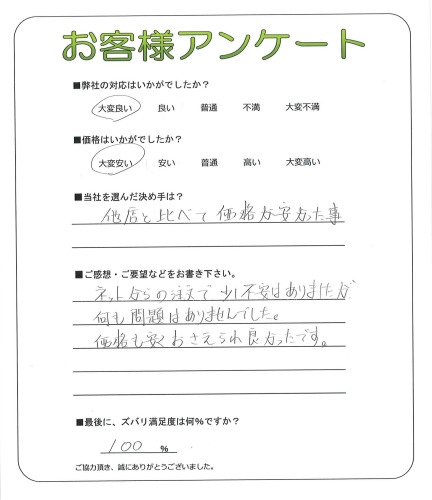 お客様アンケート
■弊社の対応はいかがでしたか？
大変良い 良い 普通 不満 大変不満
■価格はいかがでしたか？
大変安い 安い 普通 高い 大変高い
■当社を選んだ決め手は？
他店と比べて価格が安かった事
■ご感想・ご要望などをお書き下さい。
ネットからの注文で少し不安はありましたが
何も問題はありませんでした。
価格も安くおさえられ良かったです。
■最後に、ズバリ満足度は何％ですか？
100 ％
ご協力頂き、誠にありがとうございました。